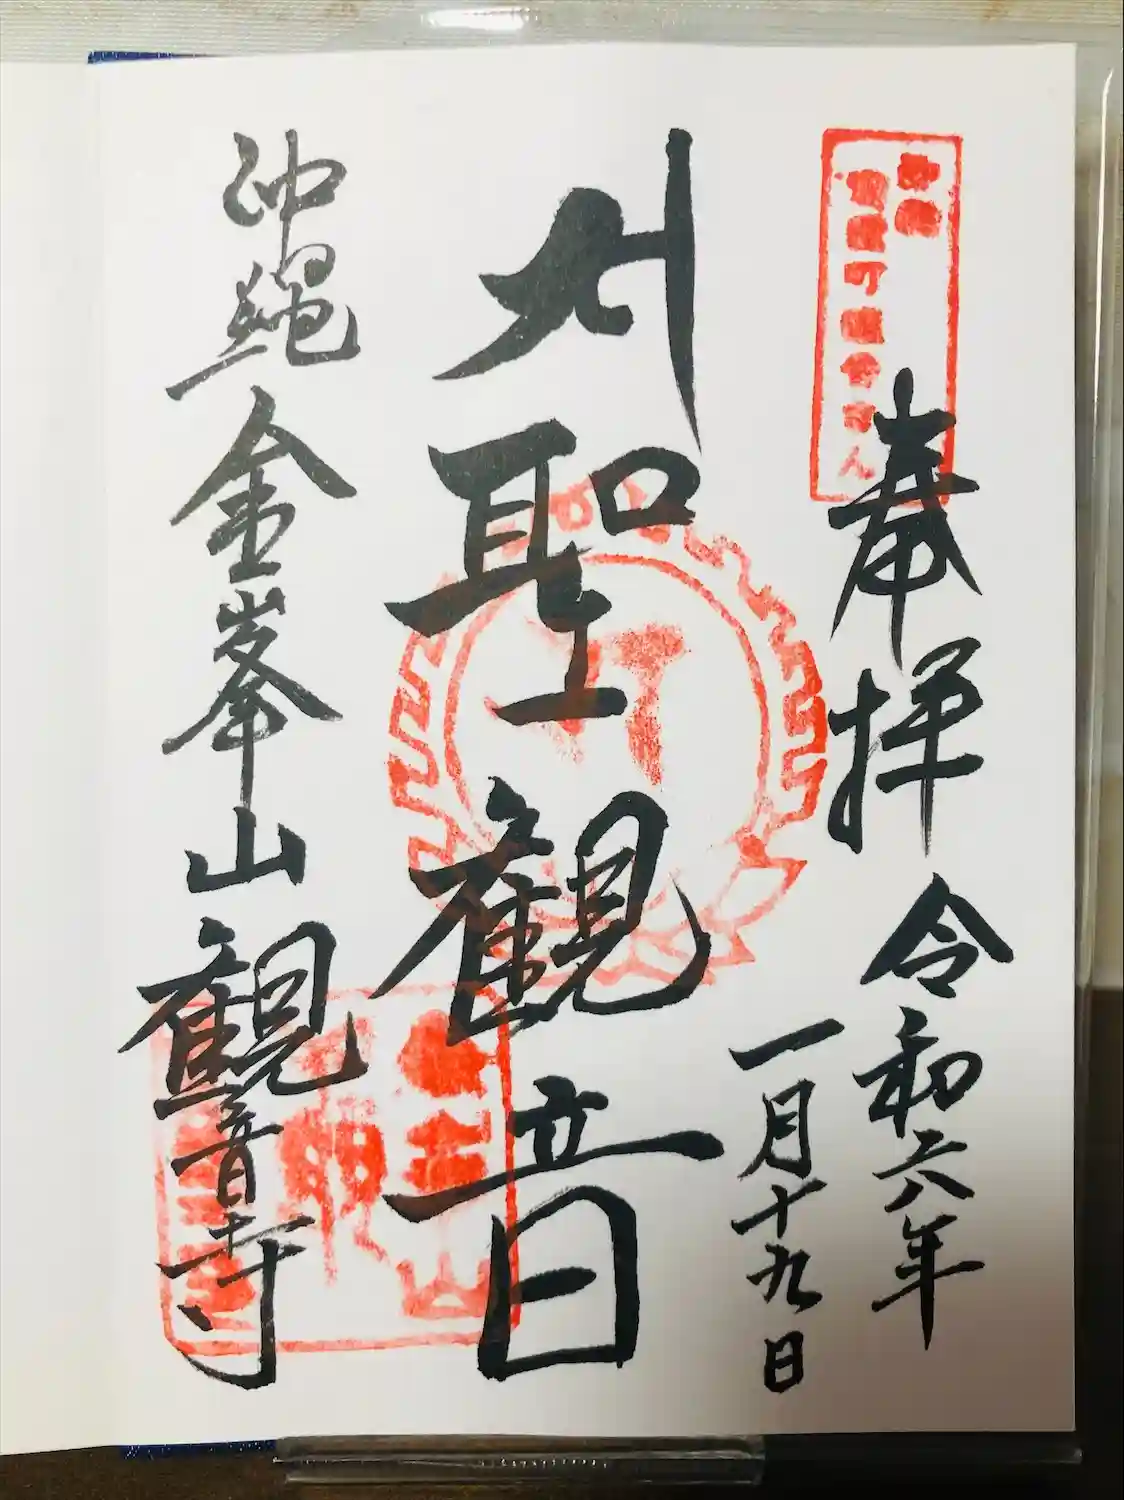 奉拝
令和六年
一月十九日
聖観音
沖縄金峯山観音寺